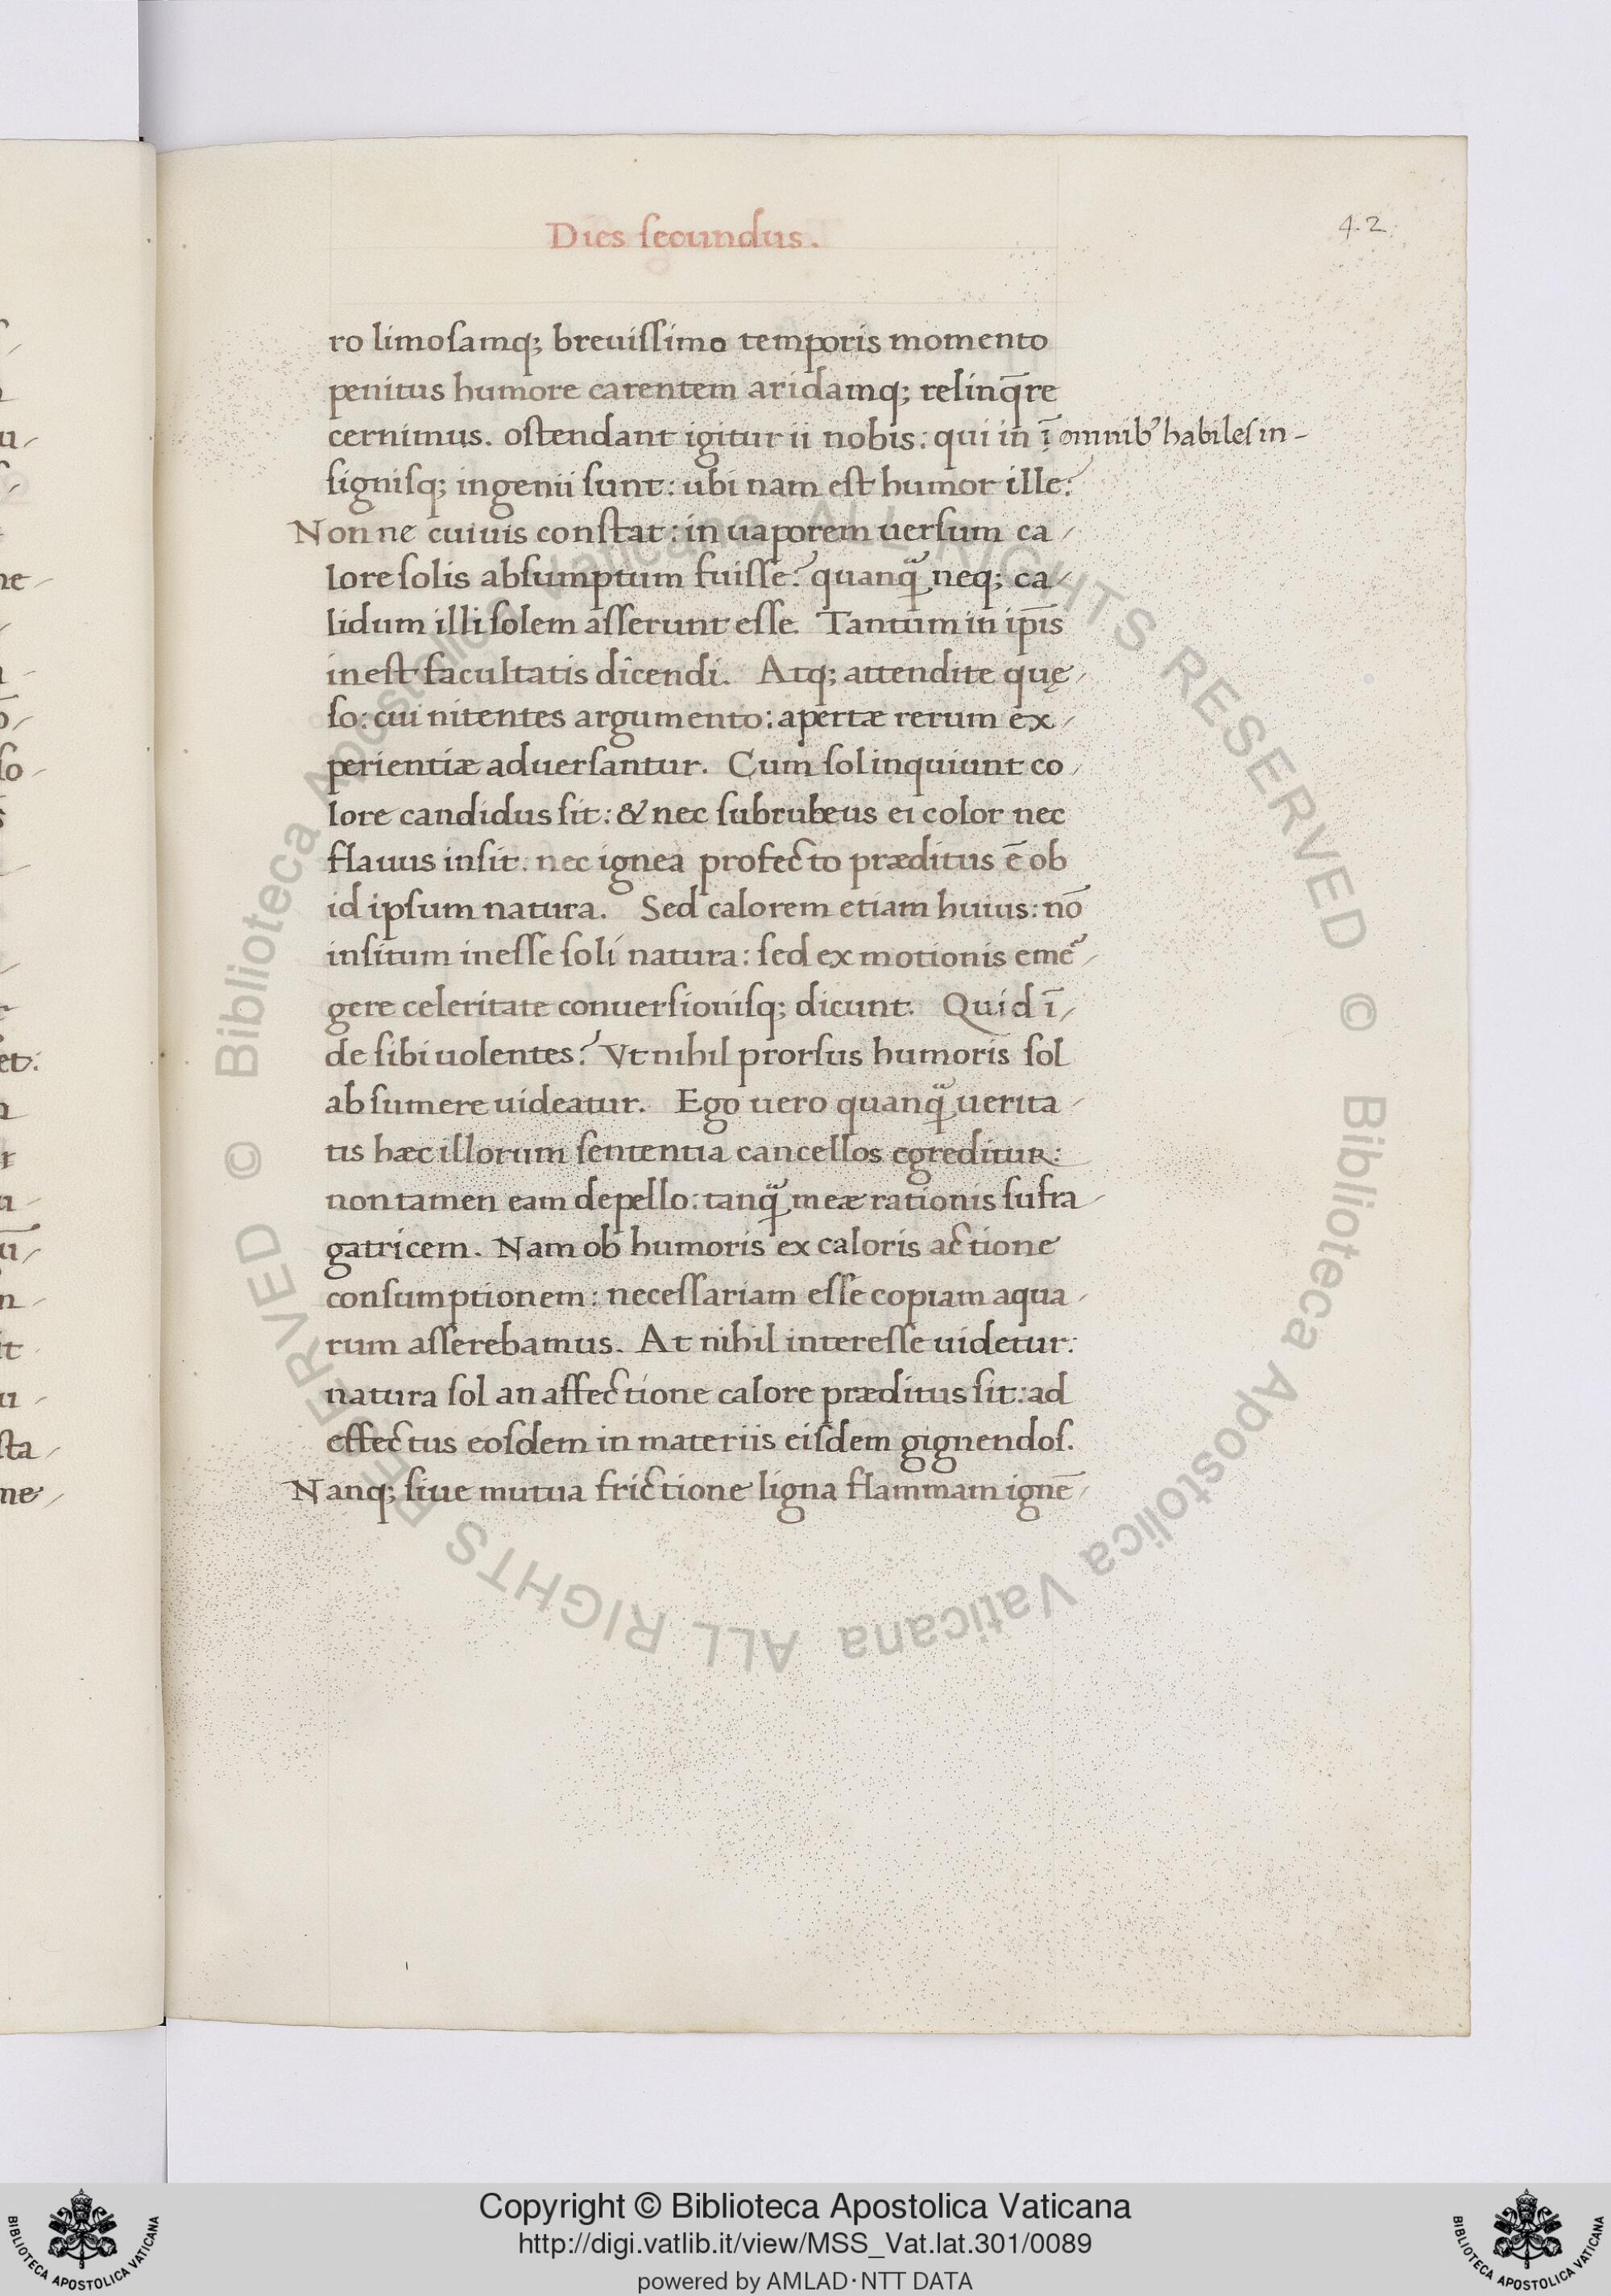 Dies secundus.
42
ro limosamq; breuissimo temporis momento
penitus humore carentem aridamq; relinq̄re
cernimus. ostendant igitur ii nobis: qui in ī omnib' habiles in-
signisq; ingenii sunt: ubi nam est humor ille?
Non ne cuiuis constat: in uaporem uersum ca/
lore solis absumptum fuisse? quanq̈ neq; ca/
lidum illi solem asserunt esse. Tantum in ip̄is
inest facultatis dicendi. Atq; attendite quę/
so: cui nitentes argumento: apertæ rerum ex/
perientiæ aduersantur. Cum sol inquiunt co/
lore candidus sit: & nec subrubeus ei color nec
flauus insit. nec ignea profecto præditus ē ob
id ipsum natura. Sed calorem etiam huius: nō
insitum inesse soli natura: sed ex motionis eme'/
gere celeritate conuersionisq; dicunt. Quid ī/
de sibi uolentes? Vt nihil prorsus humoris sol
absumere uideatur. Ego uero quanq̈ uerita/
tis hæc illorum sententia cancellos egreditur:
non tamen eam depello: tanq̈ meæ rationis sufra/
gatricem. Nam ob humoris ex caloris actione
consumptionem: necessariam esse copiam aqua/
rum asserebamus. At nihil interesse uidetur:
natura sol an affectione calore præditus sit: ad
effectus eosdem in materiis eisdem gignendos.
Nanq; siue mutua frictione ligna flammam ignē/
Biblioteca Apostolica Vaticana ALL RIGHTS RESERVED © Biblioteca Apostolica Vaticana ALL RIGHTS RESERVED ©
u/
ne/
so/
et:
it
u/
sta/
me/
Copyright © Biblioteca Apostolica Vaticana
http://digi.vatlib.it/view/MSS_Vat.lat.301/0089
powered by AMLAD·NTT DATA
BIBLIOTECA APOSTOLICA VATICANA
BIBLIOTECA APOSTOLICA VATICANA